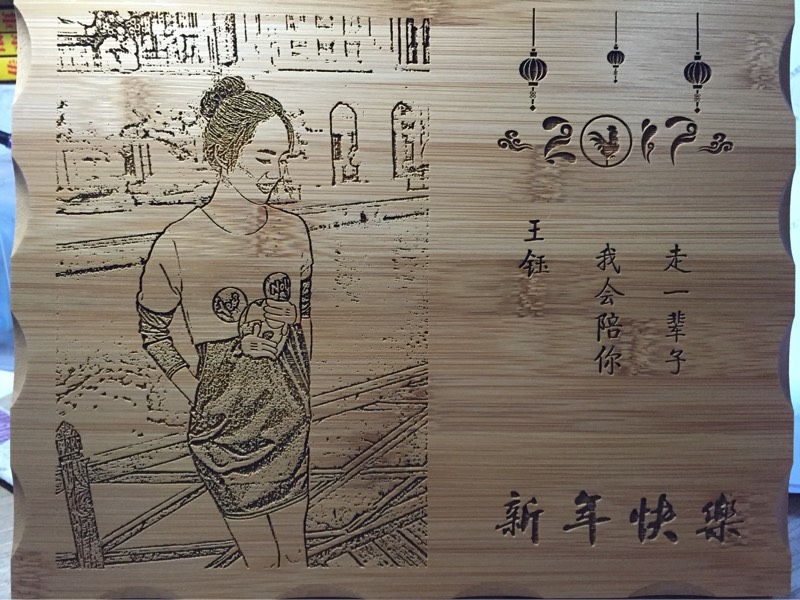 2017
王钰
我会陪你
走一辈子
新年快樂